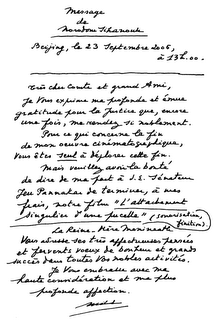 Message
de
Norodom Sihanouk
Beijing, le 23 Septembre 2006,
à 13h.00.
Très cher Comte et grand Ami,
Je Vous exprime ma profonde et émue
gratitude pour la Justice que, encore
une fois me rendez si noblement.
Pour ce qui concerne la fin
de mon oeuvre cinématographique,
Vous êtes Seul à déplorer cette fin.
Mais veuillez avoir la bonté
de dire de ma part à S.E. Sénateur
de terminer, à mes
frais, notre film "L'attachement
singulier d'une pucelle" (sonorisation,
finition).
La Reine-Mère Monineath
Vous adresse ses très affectueuses pensées
et fervents voeux de bonheur et grands
succès dans toutes Vos nobles activités.
Je Vous embrasse avec ma
haute considération et ma plus
profonde affection.